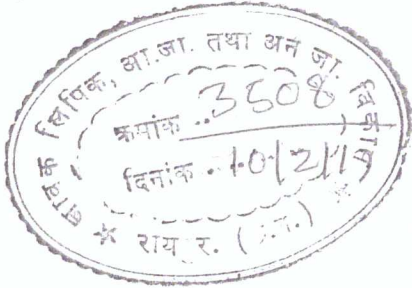 आवक लिपिक, आ.जा. तथा अन जा. विकास
क्रमांक ..3508
दिनांक .10/2/15
रायपुर. (छ.ग.)